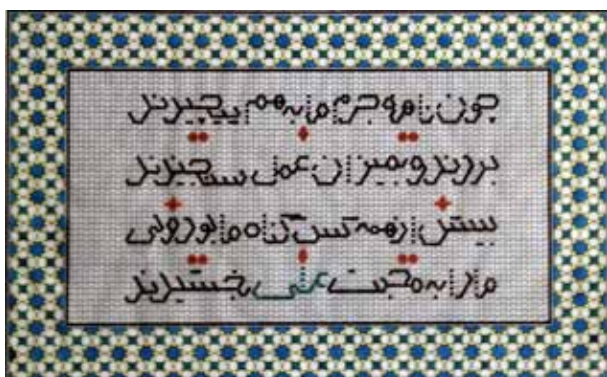 چون نامه جرم ما به هم پیچیدند
بردند و بمیزان عمل سنجیدند
بیش از همه کس گناه ما بود ولی
ما را به محبت علی بخشیدند